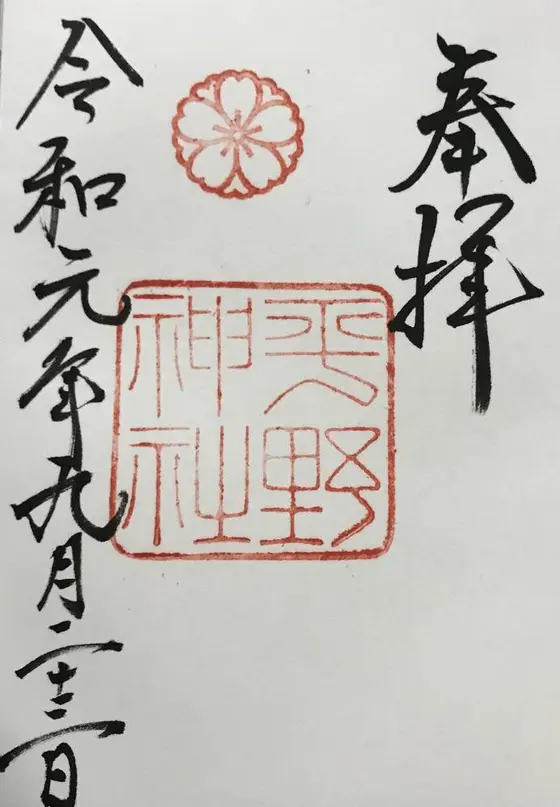 奉拝
平野
神社
令和元年九月二十三日